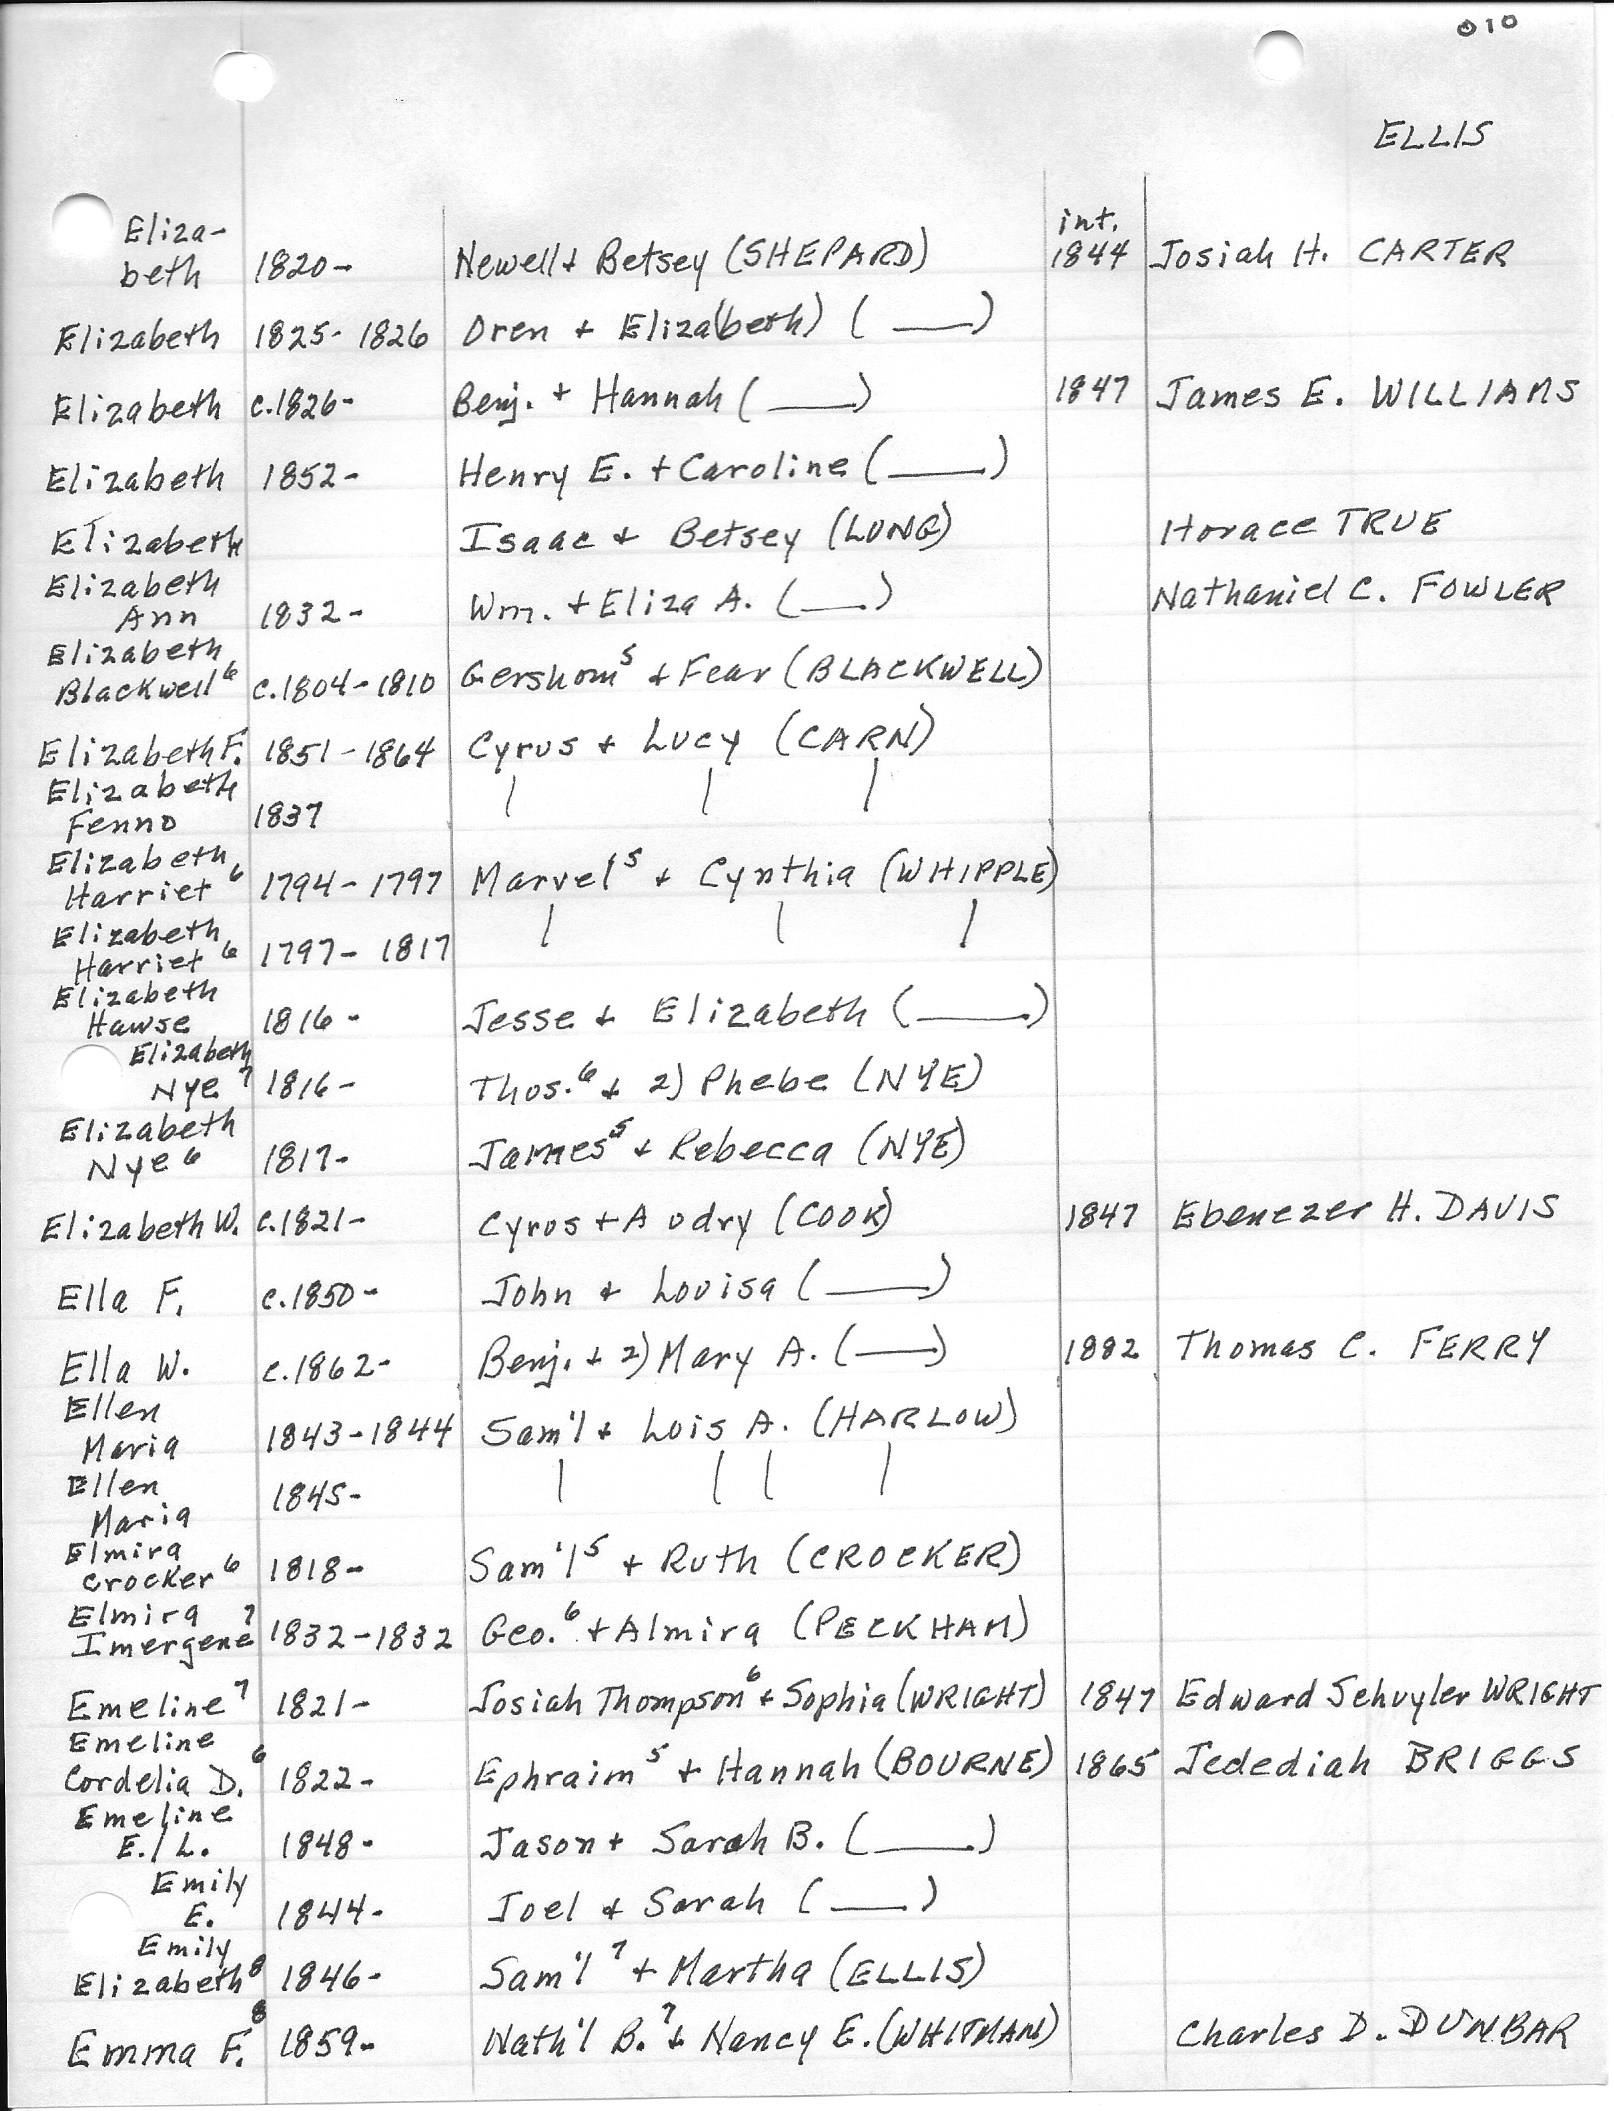 010
ELLIS
Eliza- int.
beth 1820- Newell + Betsey (SHEPARD) 1844 Josiah H. CARTER
Elizabeth 1825-1826 Oren + Eliza(beth) ( ___ )
Elizabeth c.1826- Benj. + Hannah ( ___ ) 1847 James E. WILLIAMS
Elizabeth 1852- Henry E. + Caroline ( ___ )
Elizabeth Isaac + Betsey (LUNG) Horace TRUE
Elizabeth
Ann 1832- Wm. + Eliza A. ( ___ ) Nathaniel C. FOWLER
Elizabeth
Blackwell⁶ c.1804-1810 Gershom⁵ + Fear (BLACKWELL)
Elizabeth F. 1851-1864 Cyrus + Lucy (CARN)
Elizabeth
Fenno 1837 | | |
Elizabeth
Harriet⁶ 1794-1797 Marvel⁵ + Cynthia (WHIPPLE)
Elizabeth
Harriet⁶ 1797-1817 | | |
Elizabeth
Hawse 1816- Jesse + Elizabeth ( ___ )
Elizabeth
Nye⁷ 1816- Thos.⁶ + 2) Phebe (NYE)
Elizabeth
Nye⁶ 1817- James⁵ + Rebecca (NYE)
Elizabeth W. c.1821- Cyros + Audry (COOK) 1847 Ebenezer H. DAVIS
Ella F. c.1850- John + Louisa ( ___ )
Ella W. c.1862- Benj. + 2) Mary A. ( ___ ) 1882 Thomas C. FERRY
Ellen
Maria 1843-1844 Sam'l + Lois A. (HARLOW)
Ellen
Maria 1845- | | | |
Elmira
Crocker⁶ 1818- Sam'l⁵ + Ruth (CROCKER)
Elmira
Imergene⁷ 1832-1832 Geo.⁶ + Almira (PECKHAM)
Emeline⁷ 1821- Josiah Thompson⁶ + Sophia (WRIGHT) 1847 Edward Schuyler WRIGHT
Emeline
Cordelia D.⁶ 1822- Ephraim⁵ + Hannah (BOURNE) 1865 Jedediah BRIGGS
Emeline
E./L. 1848- Jason + Sarah B. ( ___ )
Emily
E. 1844- Joel + Sarah ( ___ )
Emily
Elizabeth⁸ 1846- Sam'l⁷ + Martha (ELLIS)
Emma F.⁸ 1859- Nath'l B.⁷ + Nancy E. (WHITMAN) Charles D. DUNBAR